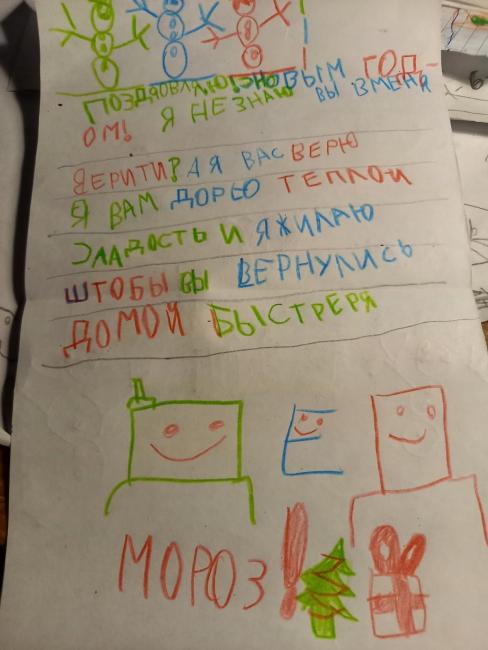 ПОЗДРОВЛЯЮ!СНОВЫМ ГОД-
ОМ! Я НЕЗНАЮ ВЫ ВМЕНЯ
ВЕРИТИ?А Я ВАС ВЕРЮ
Я ВАМ ДОРЬЮ ТЕПЛОЙ
СЛАДОСТЬ И ЯЖИЛАЮ
ШТОБЫ ВЫ ВЕРНУЛИСЬ
ДОМОЙ БЫСТРЕРЯ
МОРОЗ!